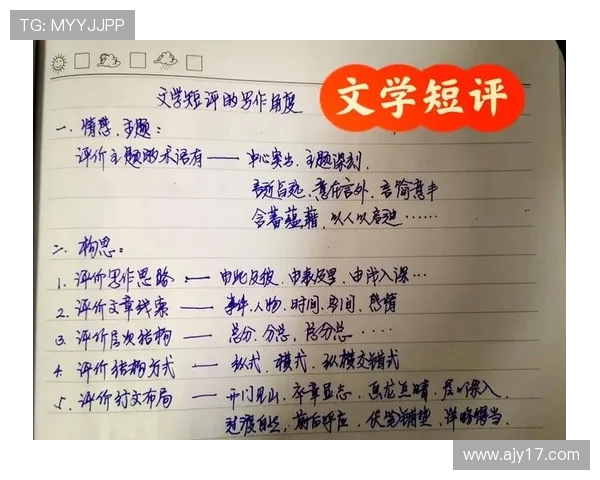 TG: MYYJJPP
文学短评
文学短评的写作角度
一、情感、主题：
评价主题的术语有——中心突出、主题深刻、
言近旨远、意在言外、言简意丰
含蓄蕴藉、以人以启迪……
二、构思：
1、评价写作思路——由此及彼、由表及里、由浅入深…
2、评价文章线索——事件、人物、时间、空间、感情
3、评价层次结构——总分、分总、总分总……
4、评价结构方式——纵式、横式、纵横交错式
5、评价行文布局——开门见山、卒章显志、画龙点睛、层层深入
过渡自然、前后呼应、伏笔铺垫、详略得当。
www.ajy17.com